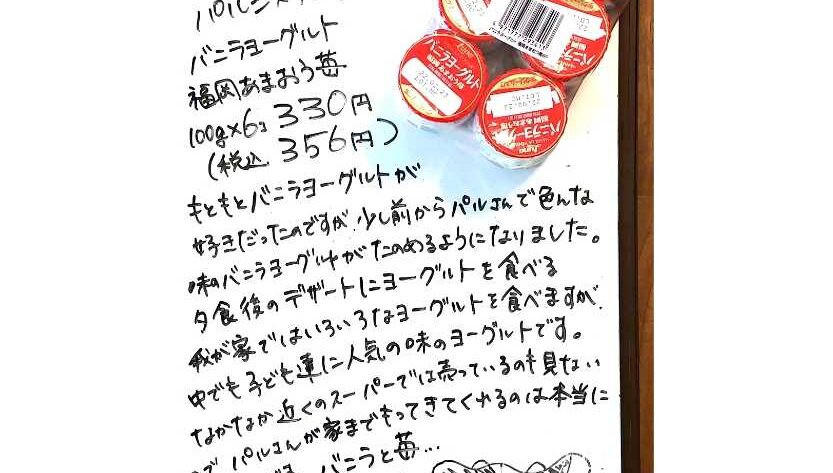 バニラヨーグルト
福岡あまおう苺
100g×6コ 330円
(税込 356円)
もともとバニラヨーグルトが
好きだったのですが、少し前からパルさんで色んな
味のバニラヨーグルトがたのめるようになりました。
夕食後のデザートにヨーグルトを食べる
我が家ではいろいろなヨーグルトを食べますが、
中でも子ども達に人気の味のヨーグルトです。
なかなか近くのスーパーでは売っているのも見ない
パルさんが家までもってきてくれるのは本当に
バニラと苺…
バニラヨーグルト
福岡あまおう苺
バニラヨーグルト
福岡あまおう苺